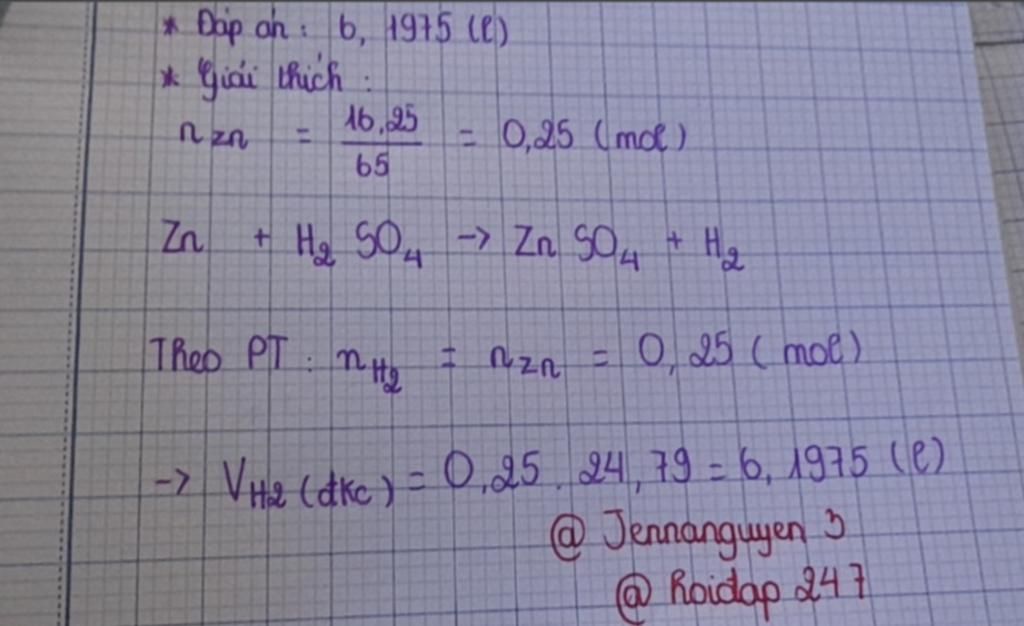 * Đáp án : 6, 1975 (l)
* Giải thích :
n Zn = 16,25 / 65 = 0,25 (mol)
Zn + H₂ SO₄ → Zn SO₄ + H₂
Theo PT : n H₂ = n Zn = 0, 25 ( mol)
→ V H₂ (đkc) = 0,25 . 24, 79 = 6, 1975 (l)
@ Jennanguyen 3
@ Hoidap 247